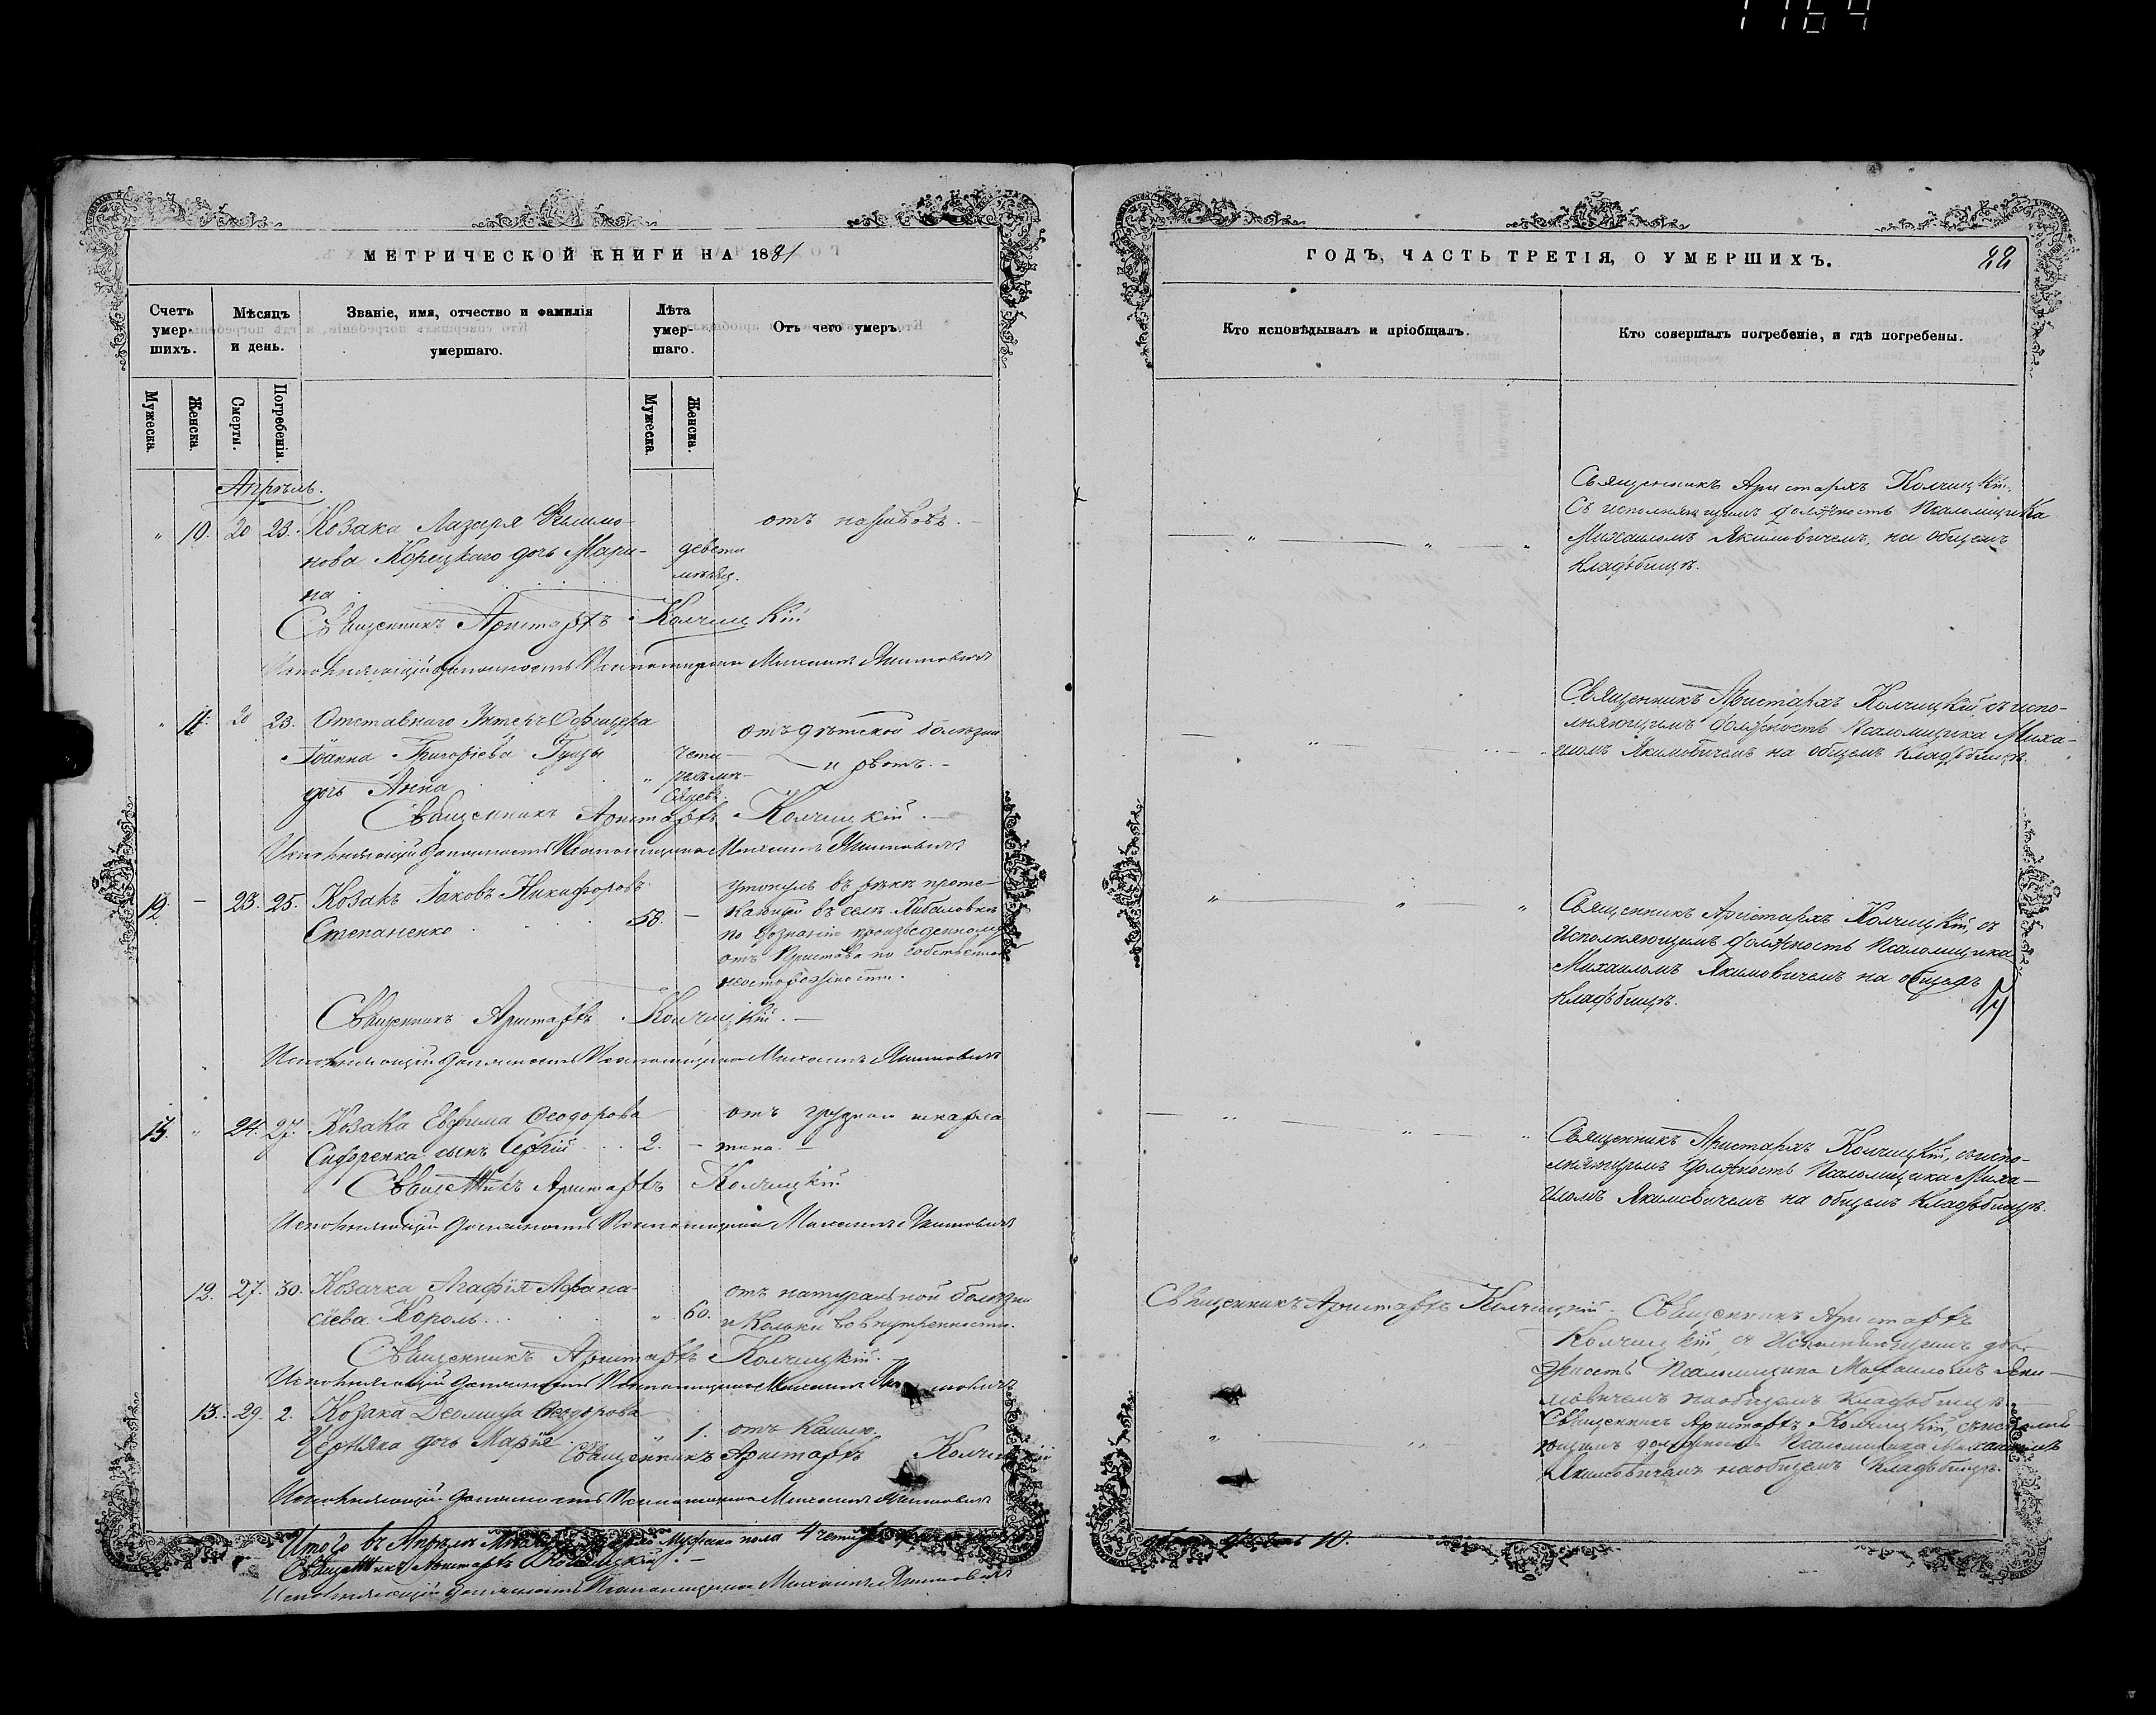 1164
МЕТРИЧЕСКОЙ КНИГИ НА 1881
Счетъ умер-шихъ.
Мѣсяцъ и день.
Званіе, имя, отчество и фамилія умершаго.
Лѣта умер-шаго.
Отъ чего умеръ.
Мужеска.
Женска.
Смерти.
Погребенія.
Мужеска.
Женска.
Апрѣль.
" 10. 20 23. Козака Лазаря Филимо-
нова Корецкаго дочь Мари-
на
девети
мѣсяц.
отъ
Священникъ Аристархъ Колчицкій
Исполняющій должность Псаломщика Михаилъ Якимовичъ
" 11. 20 23. Отставнаго Унтеръ Офицера
Іоанна Григоріева Гунды
дочь Анна
" четы-
рехъ мѣ-
сяцевъ
отъ дѣтской болѣзни
и рвотъ. -
Священникъ Аристархъ Колчицкій. -
Исполняющій должность Псаломщика Михаилъ Якимовичъ
12. - 23. 25. Козакъ Іаковъ Никифоровъ
Степаненко
58. -
утонулъ въ рѣкѣ проте-
кающей въ селѣ
по дознанію произведенному
отъ Пристава по собственной
неосторожности.
Священникъ Аристархъ Колчицкій. -
Исполняющій должность Псаломщика Михаилъ Якимовичъ
13. " 24. 27. Козака Евфима Феодорова
Сидоренка сынъ Сергій 2. -
отъ грудной шкарла
тина. -
Священникъ Аристархъ Колчицкій
Исполняющій должность Псаломщика Михаилъ Якимовичъ
12. 27. 30. Козачка Агафія Афана-
сіева Король " 60.
отъ натуральной болѣзни
и кольки во внутренности.
Священникъ Аристархъ Колчицкій.
Исполняющій должность Псаломщика Михаилъ Якимовичъ
13. 29. 2. Козака Деомида Феодорова
Черняка дочь Марія " 1. отъ кашлю.
Священникъ Аристархъ Колчицкій
Исполняющій должность Псаломщика Михаилъ Якимовичъ
Итого въ Апрѣлѣ Мужеска пола 4
Священникъ Аристархъ Колчицкій. -
Исполняющій должность Псаломщика Михаилъ Якимовичъ
ГОДЪ, ЧАСТЬ ТРЕТІЯ, О УМЕРШИХЪ.
22
Кто исповѣдывалъ и пріобщалъ.
Кто совершалъ погребеніе, и гдѣ погребены.
Священникъ Аристархъ Колчицкій.
Съ исполняющимъ должность Псаломщика
Михаиломъ Якимовичемъ, на общемъ
кладбищѣ.
Священникъ Аристархъ Колчицкій, съ испо-
лняющимъ должность Псаломщика Миха-
иломъ Якимовичемъ на общемъ кладбищѣ.
Священникъ Аристархъ Колчицкій, съ
Исполняющимъ должность Псаломщика
Михаиломъ Якимовичемъ на общемъ
кладбищѣ.
Священникъ Аристархъ Колчицкій, съ испо-
лняющимъ должность Псаломщика Миха-
иломъ Якимовичемъ на общемъ кладбищѣ.
Священникъ Аристархъ Колчицкій.
Священникъ Аристархъ
Колчицкій, съ Исполняющимъ дол-
жность Псаломщика Михаиломъ Яки-
мовичемъ на общемъ кладбищѣ
Священникъ Аристархъ Колчицкій, съ исполня-
ющимъ должность Псаломщика Михаиломъ
Якимовичемъ на общемъ кладбищѣ.
10.